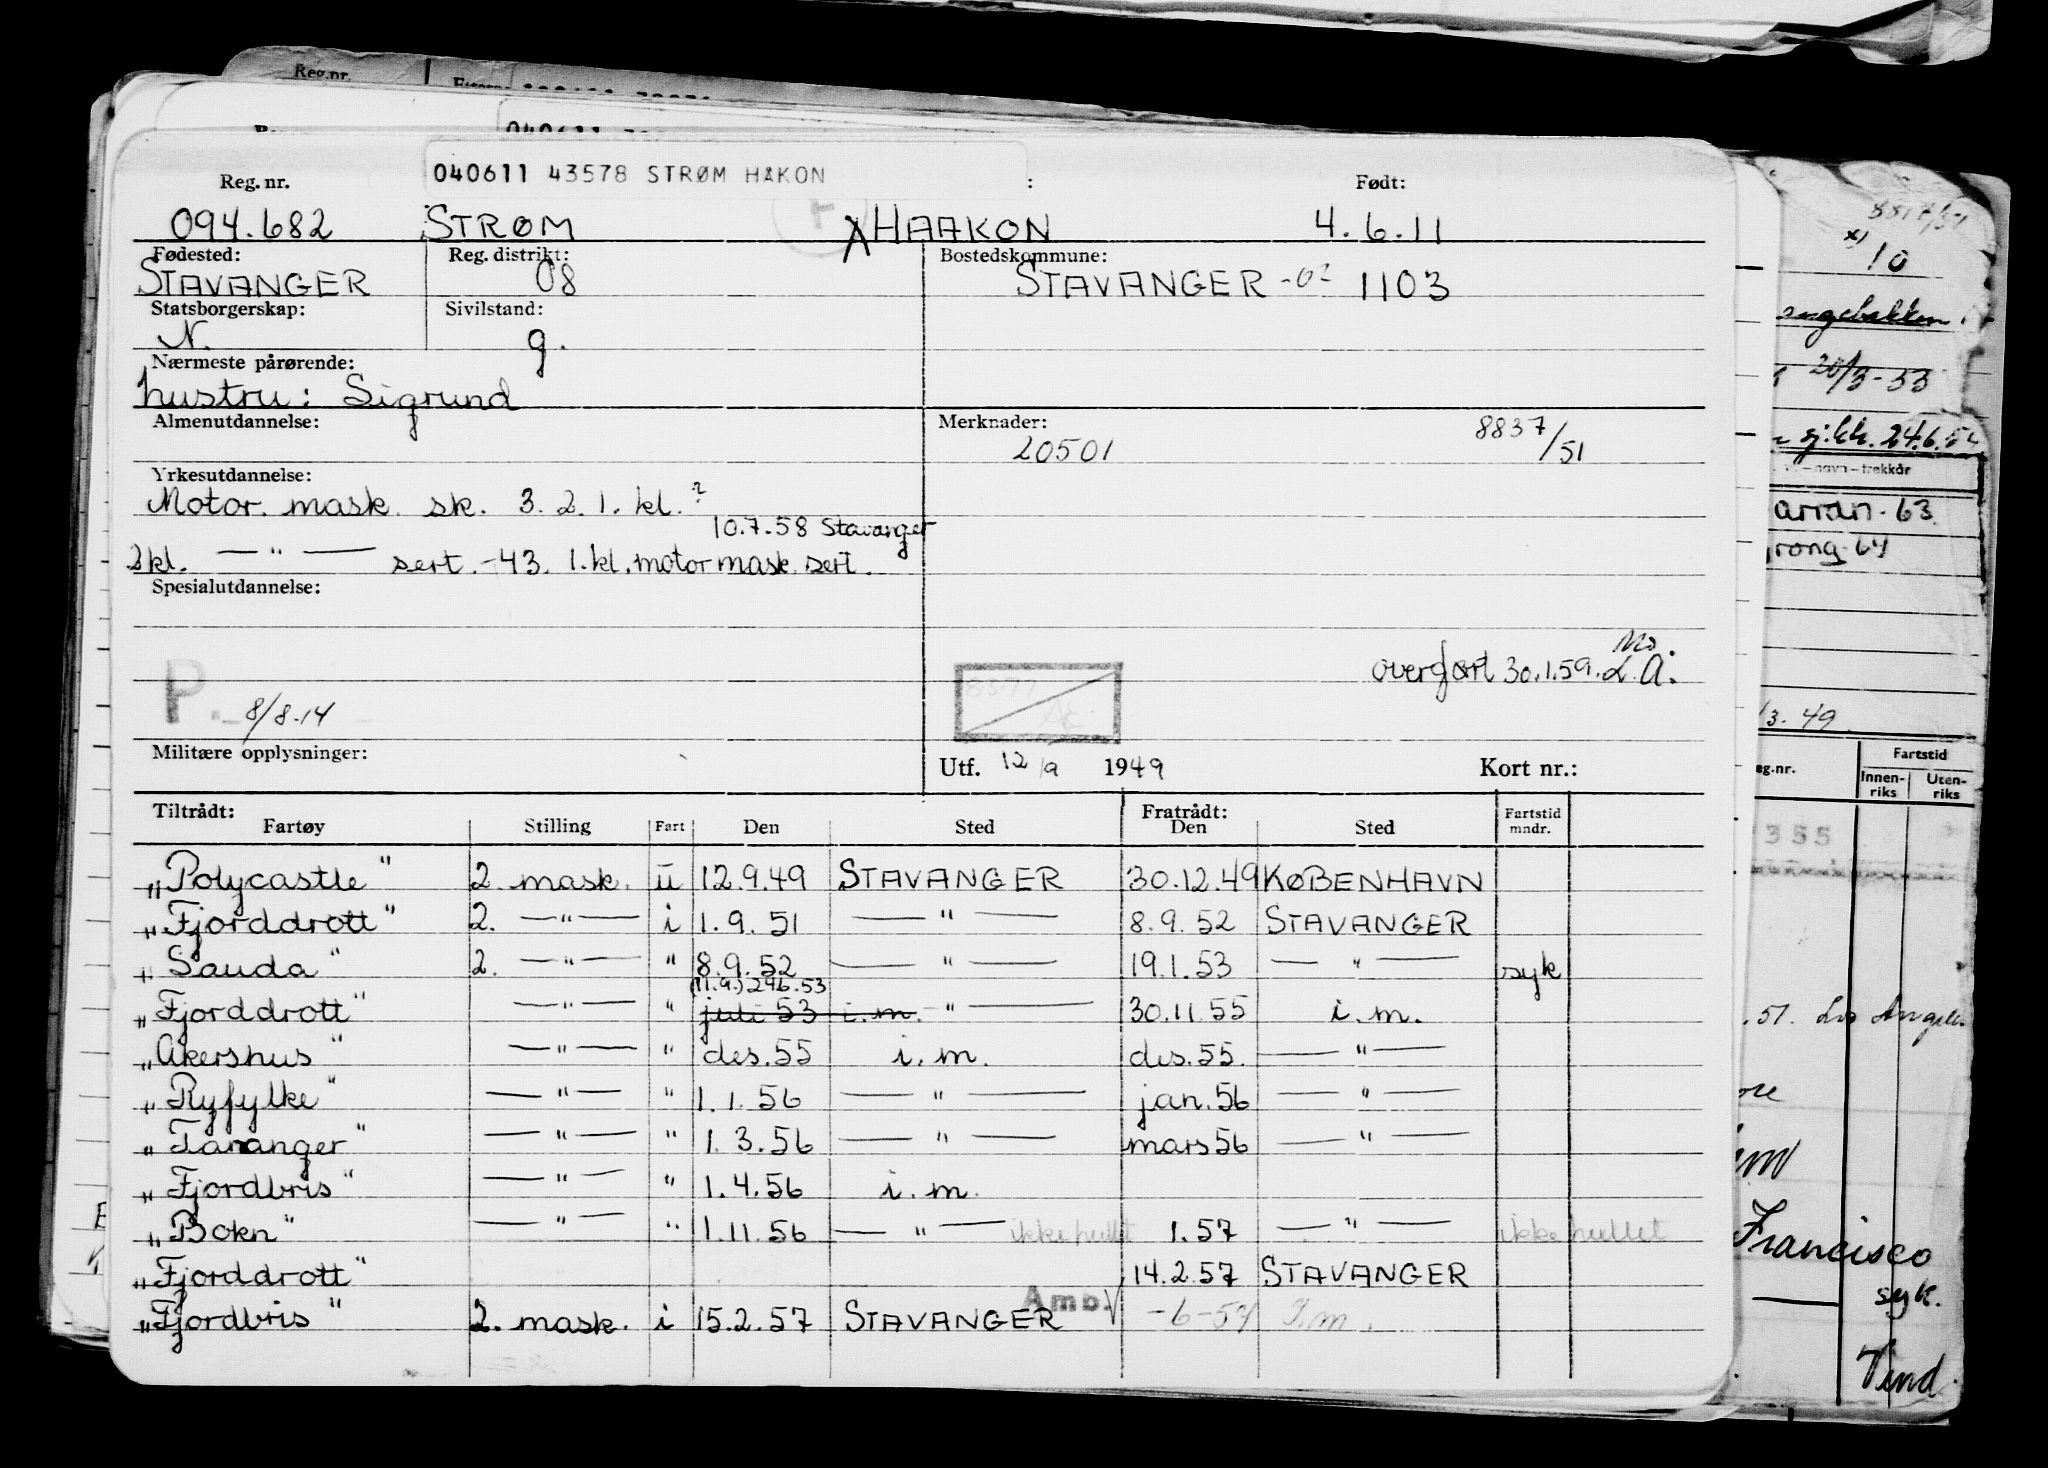 Reg.nr.
040611
040611 43578 STRØM HÅKON
Reg. nr. : Født:
094.682 STRØM X HAAKON 4.6.11
Fødested: Reg. distrikt: Bostedskommune:
STAVANGER 08 STAVANGER -02 1103
Statsborgerskap: Sivilstand:
N. g.
Nærmeste pårørende:
hustru: Sigrund
Almenutdannelse: Merknader:
20501 8837/51
Yrkesutdannelse:
Motor. mask. sk. 3. 2. 1. kl.?
10.7.58 Stavanger
2kl. — " — sert. -43. 1. kl. motor mask. sert.
Spesialutdannelse:
overført 30.1.59. L.A.
P. 8/8.14
Militære opplysninger: Utf. 12/9 1949 Kort nr.:
Tiltrådt: Fratrådt:
Fartøy Stilling Fart Den Sted Den Sted Fartstid mndr.
„Polycastle" 2. mask. u 12.9.49 STAVANGER 30.12.49 KØBENHAVN
„Fjorddrott" 2. — " — i 1.9.51 — " — 8.9.52 STAVANGER
„Sauda" 2. — " — " 8.9.52 — " — 19.1.53 — " — syk
(M.a.) 29.6.53
„Fjorddrott" — " — " juli 53 i.m. — " — 30.11.55 i.m.
„Akershus" — " — " des.55 i.m. des.55. — " —
„Ryfylke" — " — " 1.1.56 — " — jan.56 — " —
„Tananger" — " — " 1.3.56 — " — mars 56 — " —
„Fjordbris" — " — " 1.4.56 i.m.
„Bokn" — " — " 1.11.56 — " — ikke hullet 1.57 — " — ikke hullet
„Fjorddrott" 14.2.57 STAVANGER
„Fjordbris" 2. mask. i 15.2.57 STAVANGER Amb. -6-57 I.m.
10
20/3-53
sj.kk. 24.6.54
navn – trekkår
63
64
3.49
eg.nr. Fartstid
Innen-riks Uten-riks
355
.51. Los Angeles
Francisco
syk.